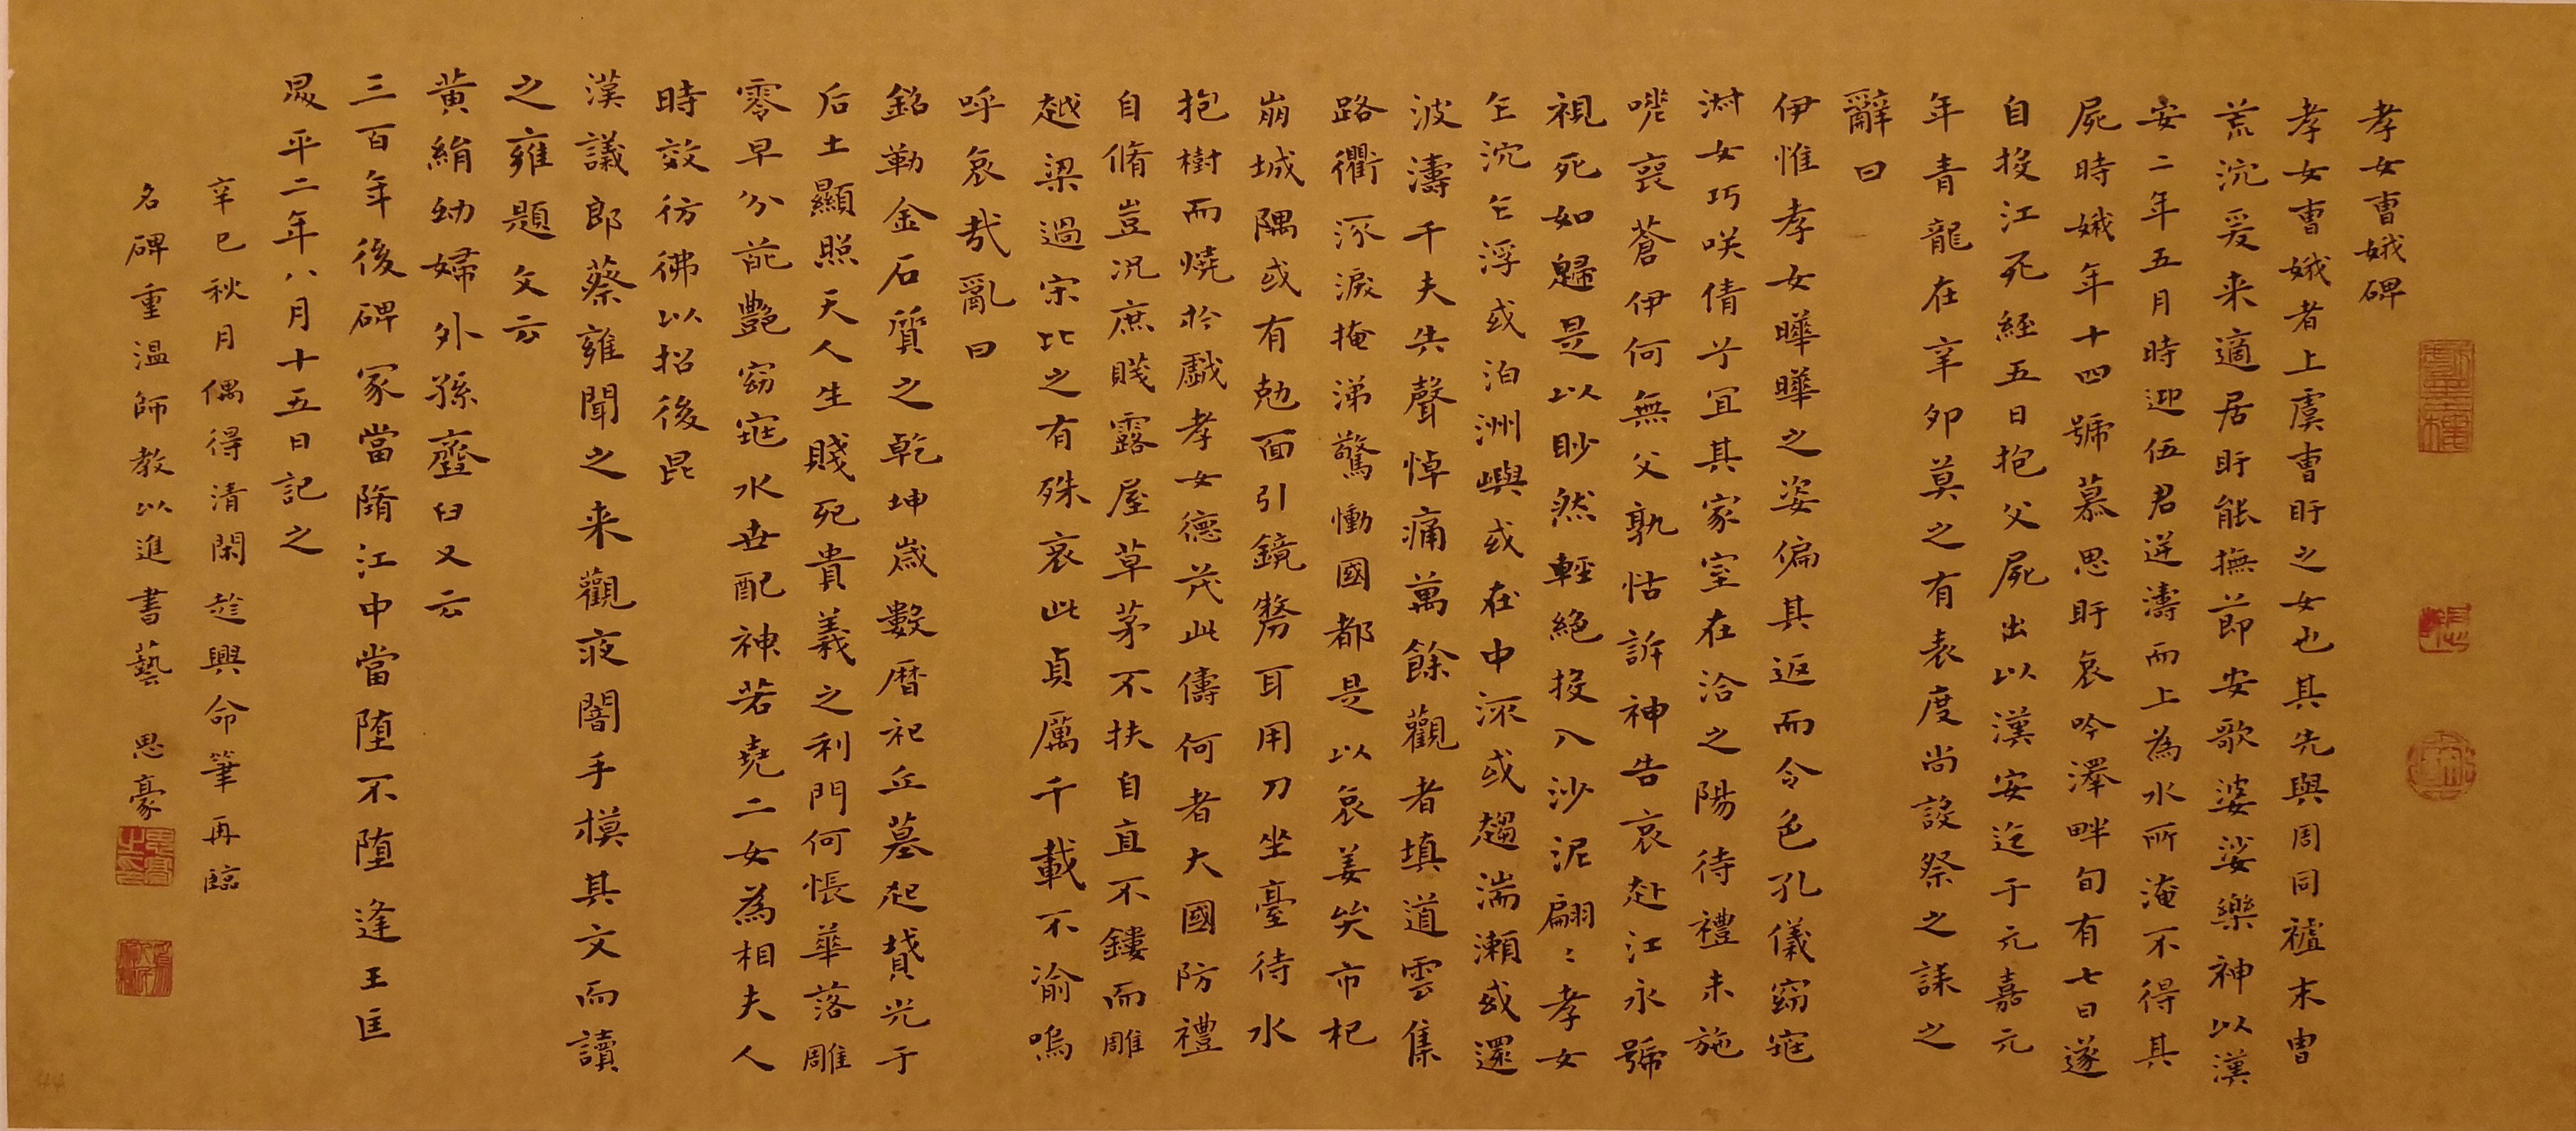 孝女曹娥碑
孝女曹娥者上虞曹盱之女也其先與周同祖末胄
荒沉爰来適居盱能撫節安歌婆娑樂神以漢
安二年五月時迎伍君逆濤而上為水所淹不得其
屍時娥年十四號慕思盱哀吟澤畔旬有七日遂
自投江死經五日抱父屍出以漢安迄于元嘉元
年青龍在辛卯莫之有表度尚設祭之誄之
辭曰
伊惟孝女曄曄之姿偏其返而令色孔儀窈窕
淋女巧咲倩兮宜其家室在洽之陽待禮未施
嗟喪蒼伊何無父孰怙訴神告哀赴江永號
視死如歸是以眇然輕絕投入沙泥翩〻孝女
乍沉乍浮或泊洲嶼或在中流或趨湍瀬或還
波濤千夫失聲悼痛萬餘觀者填道雲集
路衢流淚掩涕驚慟國都是以哀姜哭市杞
崩城隅或有尅面引鏡剺耳用刀坐臺待水
抱樹而燒於戯孝女德茂此儔何者大國防禮
自脩豈況庶賤露屋草茅不扶自直不鏤而雕
越梁過宋比之有殊哀此貞厲千載不渝嗚
呼哀哉亂曰
銘勒金石質之乾坤歲數曆祀丘墓起墳光于
后土顯照天人生賤死貴義之利門何悵華落雕
零早分葩艷窈窕永世配神若堯二女為相夫人
時效彷彿以招後昆
漢議郎蔡雍聞之来觀夜闇手模其文而讀
之雍題文云
黃絹幼婦外孫齏臼又云
三百年後碑冢當隋江中當堕不堕逢王匡
昇平二年八月十五日記之
辛巳秋月偶得清閑趁興命筆再臨
名碑重温師教以進書藝 思豪